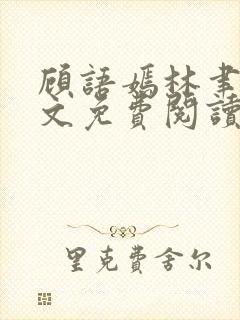 顾語嫣林聿
文免費閱讀
里克費舍尔